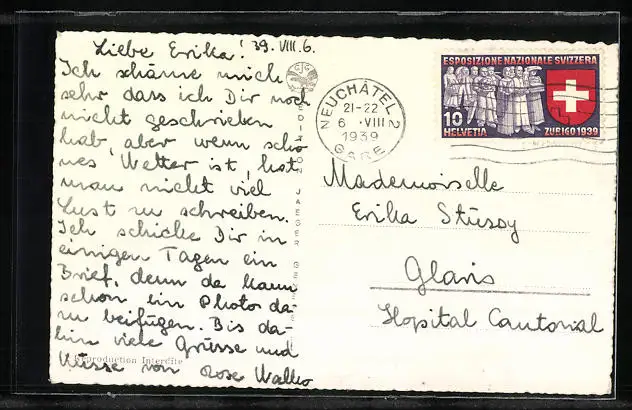 Liebe Erika! 39. VIII. 6.
Ich schäme mich
sehr dass ich Dir noch
nicht geschrieben
hab, aber wenn schö
nes Wetter ist, hat
man nicht viel
Lust zu schreiben.
Ich schicke Dir in
einigen Tagen ein
Brief, denn da kann
schon ein Photo da-
zu beifügen. Bis da-
hin viele Grüsse und
Küsse von Rose
Reproduction Interdite
EDITION JAEGER
NEUCHÂTEL 2
21-22
6 . VIII
1939
GARE
ESPOSIZIONE NAZIONALE SVIZZERA
10
HELVETIA ZURIGO 1939
Mademoiselle
Erika
Glaris
Hopital Cantonal